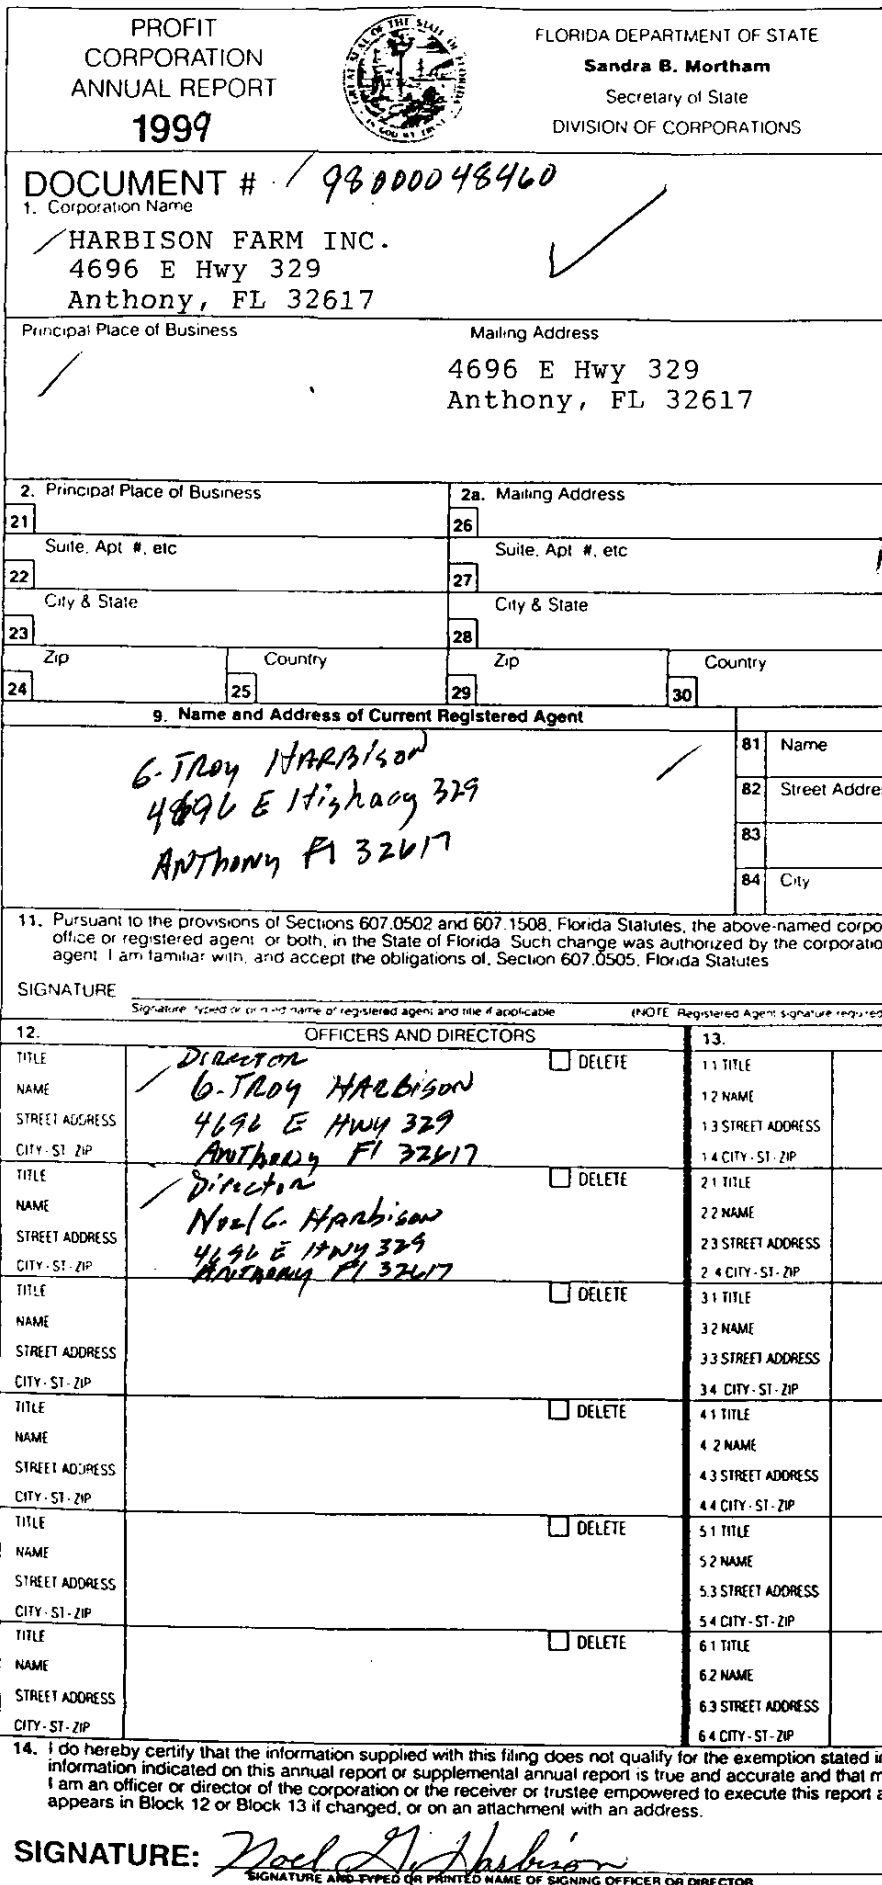 PROFIT
CORPORATION
ANNUAL REPORT
1999
FLORIDA DEPARTMENT OF STATE
Sandra B. Mortham
Secretary of State
DIVISION OF CORPORATIONS
DOCUMENT # 98000048460
1. Corporation Name
HARBISON FARM INC.
4696 E Hwy 329
Anthony, FL 32617
Principal Place of Business
Mailing Address
4696 E Hwy 329
Anthony, FL 32617
2. Principal Place of Business
2a. Mailing Address
21
26
Suite, Apt #, etc
Suite, Apt #, etc
22
27
City & State
City & State
23
28
Zip
Country
Zip
Country
24
25
29
30
9. Name and Address of Current Registered Agent
G. TROY HARBISON
4696 E Highway 329
ANTHONY Fl 32617
81 Name
82 Street Addre
83
84 City
11. Pursuant to the provisions of Sections 607.0502 and 607.1508, Florida Statutes, the above-named corpo
office or registered agent or both, in the State of Florida Such change was authorized by the corporatio
agent I am familiar with, and accept the obligations of, Section 607.0505, Florida Statutes
SIGNATURE
Signature typed or printed name of registered agent and title if applicable
(NOTE Registered Agent signature required
12. OFFICERS AND DIRECTORS
13.
TITLE DIRECTOR DELETE
NAME G. TROY HARBISON
STREET ADDRESS 4696 E HWY 329
CITY - ST ZIP ANTHONY Fl 32617
1 1 TITLE
1 2 NAME
1 3 STREET ADDRESS
1 4 CITY - ST - ZIP
TITLE Director DELETE
NAME Noel G. Harbison
STREET ADDRESS 4696 E HWY 329
CITY - ST - ZIP ANTHONY Fl 32617
2 1 TITLE
2 2 NAME
2 3 STREET ADDRESS
2 4 CITY - ST - ZIP
TITLE DELETE
NAME
STREET ADDRESS
CITY - ST - ZIP
3 1 TITLE
3 2 NAME
3 3 STREET ADDRESS
3 4 CITY - ST - ZIP
TITLE DELETE
NAME
STREET ADDRESS
CITY - ST - ZIP
4 1 TITLE
4 2 NAME
4 3 STREET ADDRESS
4 4 CITY - ST - ZIP
TITLE DELETE
NAME
STREET ADDRESS
CITY - ST - ZIP
5 1 TITLE
5 2 NAME
5.3 STREET ADDRESS
5 4 CITY - ST - ZIP
TITLE DELETE
NAME
STREET ADDRESS
CITY - ST - ZIP
6 1 TITLE
6.2 NAME
6.3 STREET ADDRESS
6 4 CITY - ST - ZIP
14. I do hereby certify that the information supplied with this filing does not qualify for the exemption stated i
information indicated on this annual report or supplemental annual report is true and accurate and that m
I am an officer or director of the corporation or the receiver or trustee empowered to execute this report a
appears in Block 12 or Block 13 if changed, or on an attachment with an address.
SIGNATURE: Noel G. Harbison
SIGNATURE AND TYPED OR PRINTED NAME OF SIGNING OFFICER OR DIRECTOR